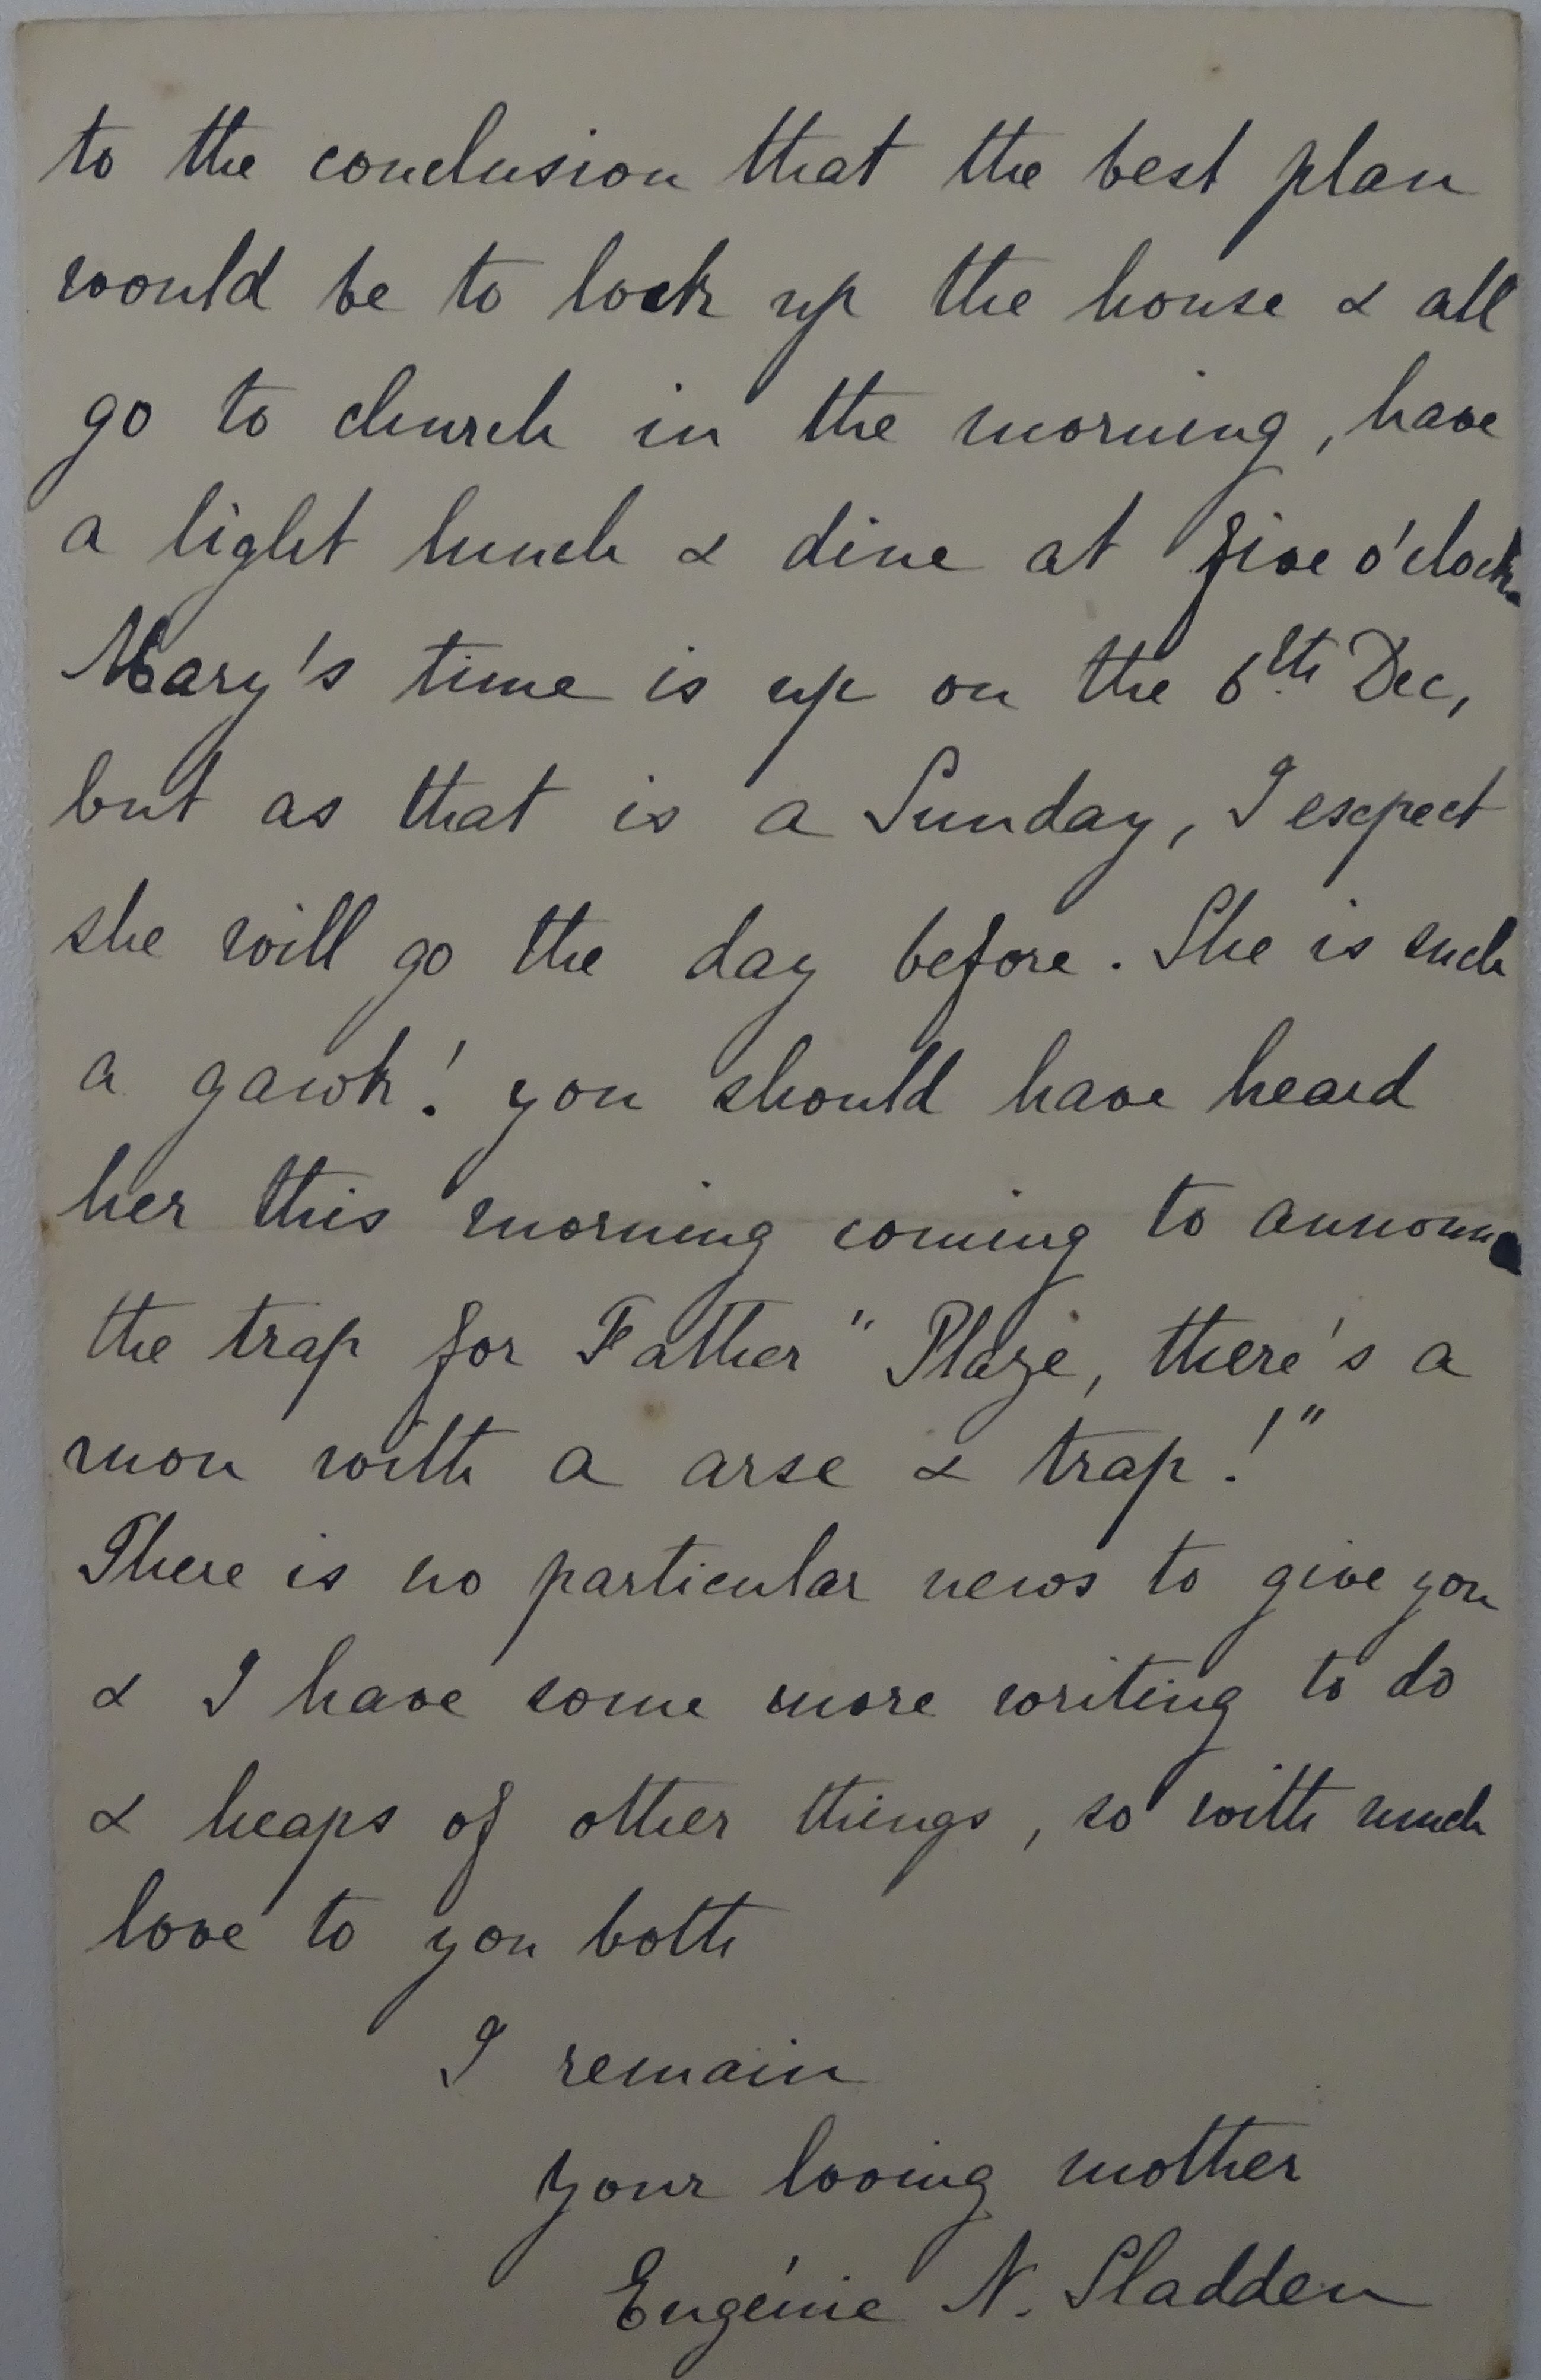 to the conclusion that the best plan
would be to lock up the house & all
go to church in the morning, have
a light lunch & dine at five o'clock.
Mary's time is up on the 6th Dec,
but as that is a Sunday, I expect
she will go the day before. She is such
a gawk! you should have heard
her this morning coming to announce
the trap for Father "Plaze, there's a
mon with a arse & trap!"
There is no particular news to give you
& I have some more writing to do
& heaps of other things, so with much
love to you both
I remain
your loving mother
Eugénie N. Sladden